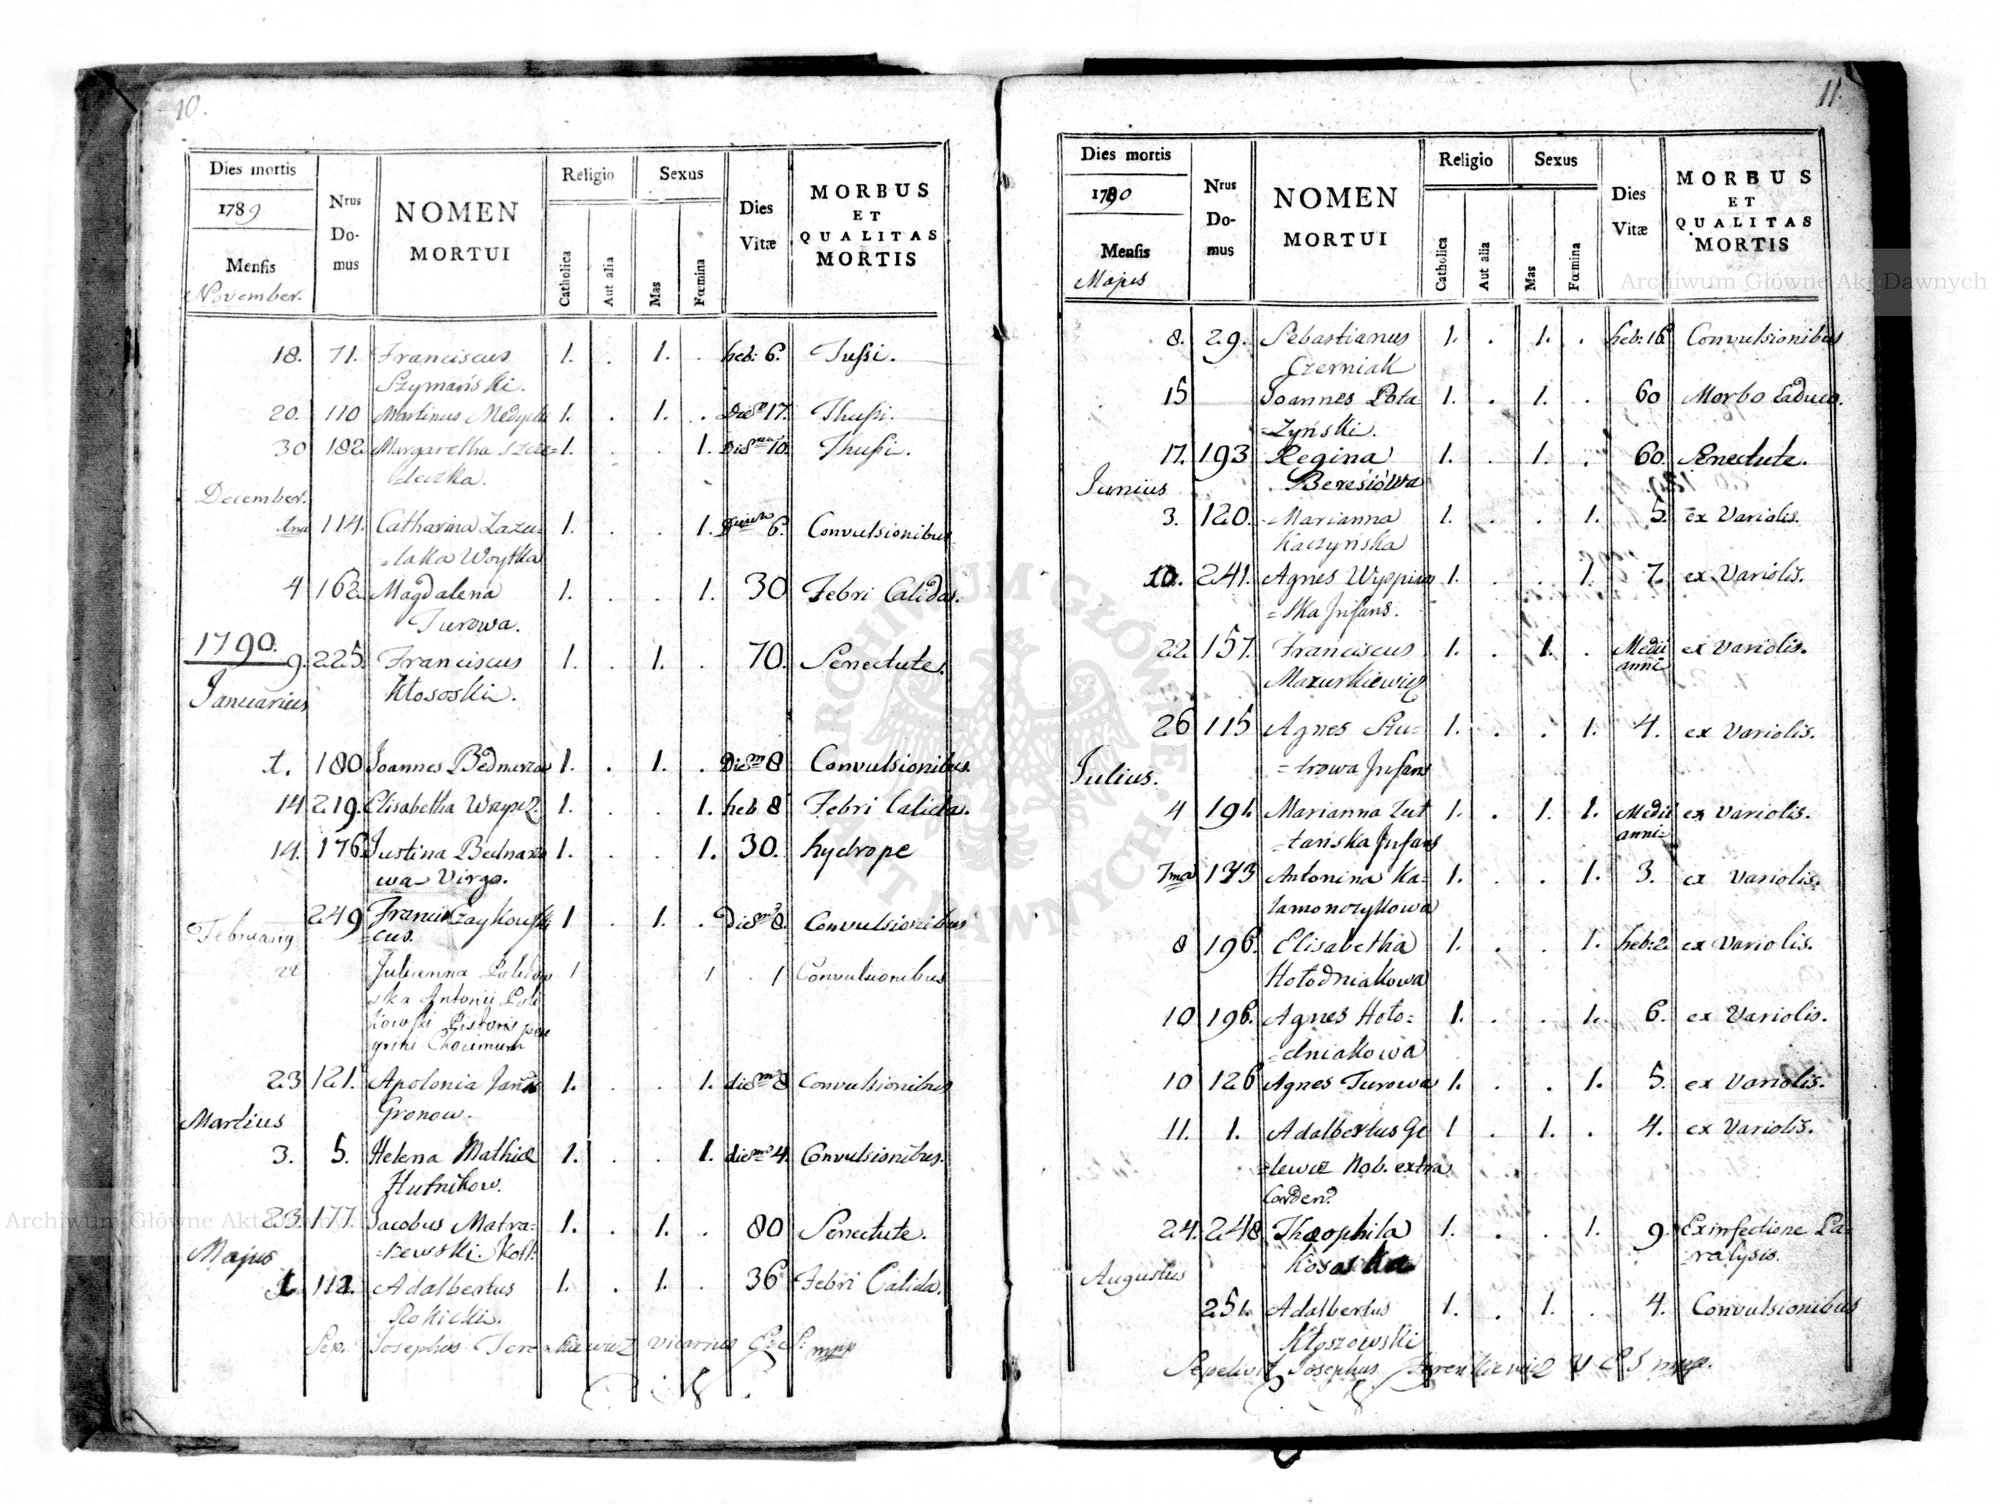 10.
Dies mortis
1789
Mensis
November.
Nrus
Do-
mus
NOMEN
MORTUI
Religio
Catholica
Aut alia
Sexus
Mas
Fœmina
Dies
Vitæ
MORBUS
ET
QUALITAS
MORTIS
18. 71. Franciscus 1. . 1. . heb: 6. Tussi.
Szymański.
20. 110 Martinus Medycki 1. . 1. . 17. Thussi.
30 182. Margaretha 1. . . 1. 10. Thussi.
December.
114. Catharina Lazu= 1. . . 1. 6. Convulsionibus
=laka Woytka
4 162. Magdalena 1. . . 1. 30 Febri Calida.
Turowa.
1790.
9. 225. Franciscus 1. . 1. . 70. Senectute.
Januarius Kłososki.
1. 180 Joannes Bednarzow 1. . 1. . Diem 8 Convulsionibus.
14 219. Elisabetha 1. . . 1. heb 8 Febri Calida.
14. 176. Justina Bednarzo 1. . . 1. 30. hydrope
wa Virgo.
249 Francis Czaykowski 1 . 1. . 8. Convulsionibus
February =cus.
22 Julianna 1 1 . 1 Convulsionibus
=ska Antonii Poli
kowski Pistoris
23 121. Apolonia 1. . . 1. diem 8 Convulsionibus
Martius Gronow.
3. 5. Helena Mathiæ 1. . . 1. diem 4. Convulsionibus.
Hutnikow.
23. 177. Jacobus Matra= 1. . 1. . 80 Senectute.
Majus
1 112. Adalbertus 1. . 1. . 36 Febri Calida.
Rokicki.
Sep: Josephus Terenkiewicz Vicarius mpp
11.
Dies mortis
1790
Mensis
Majus
Nrus
Do-
mus
NOMEN
MORTUI
Religio
Catholica
Aut alia
Sexus
Mas
Fœmina
Dies
Vitæ
MORBUS
ET
QUALITAS
MORTIS
8. 29. Sebastianus 1. . 1. . heb: 16. Convulsionibus
Czerniak
15 Joannes Pola 1. . 1. . 60 Morbo Caduco.
=Zyński.
17. 193 Regina 1. . 1. . 60. Senectute.
Junius Beresiówa
3. 120. =Marianna 1. . . 1. 5. ex Variolis.
Kaczyńska
10. 241. Agnes 1. . . 1. 7. ex Variolis.
=ska Infans.
22. 157. Franciscus 1. . 1. . Medii ex Variolis.
Mazurkiewicz anni
26 115 Agnes Piu= 1. . . 1. 4. ex Variolis.
Julius. =trowa Infans
4 191. Marianna Lut 1. . 1. 1. Medii ex Variolis.
=tańska Infans anni
7ma 173 Antonina Ka= 1. . . 1. 3. ex Variolis.
8 196. Elisabetha 1. . . 1. heb: 2. ex Variolis.
Hołodniakowa
10 196. Agnes Hoło= 1. . . 1. 6. ex Variolis.
=dniakowa
10 126 Agnes Turowa 1. . . 1. 5. ex Variolis.
11. 1. Adalbertus Ge 1 . 1. . 4. ex Variolis.
=lewicz Nob. extra
Corden?
24. 248 Theophila 1. . . 1. 9. Ex infectione Pa=
Kososka ralysis.
Augustus
251. Adalbertus 1. . 1. . 4. Convulsionibus
Kłoszowski
Sepelivit Josephus Terenkiewicz V E S mpp.
Archiwum Główne Akt Dawnych
Archiwum Główne Akt Dawnych
ARCHIWUM GŁÓWNE AKT DAWNYCH